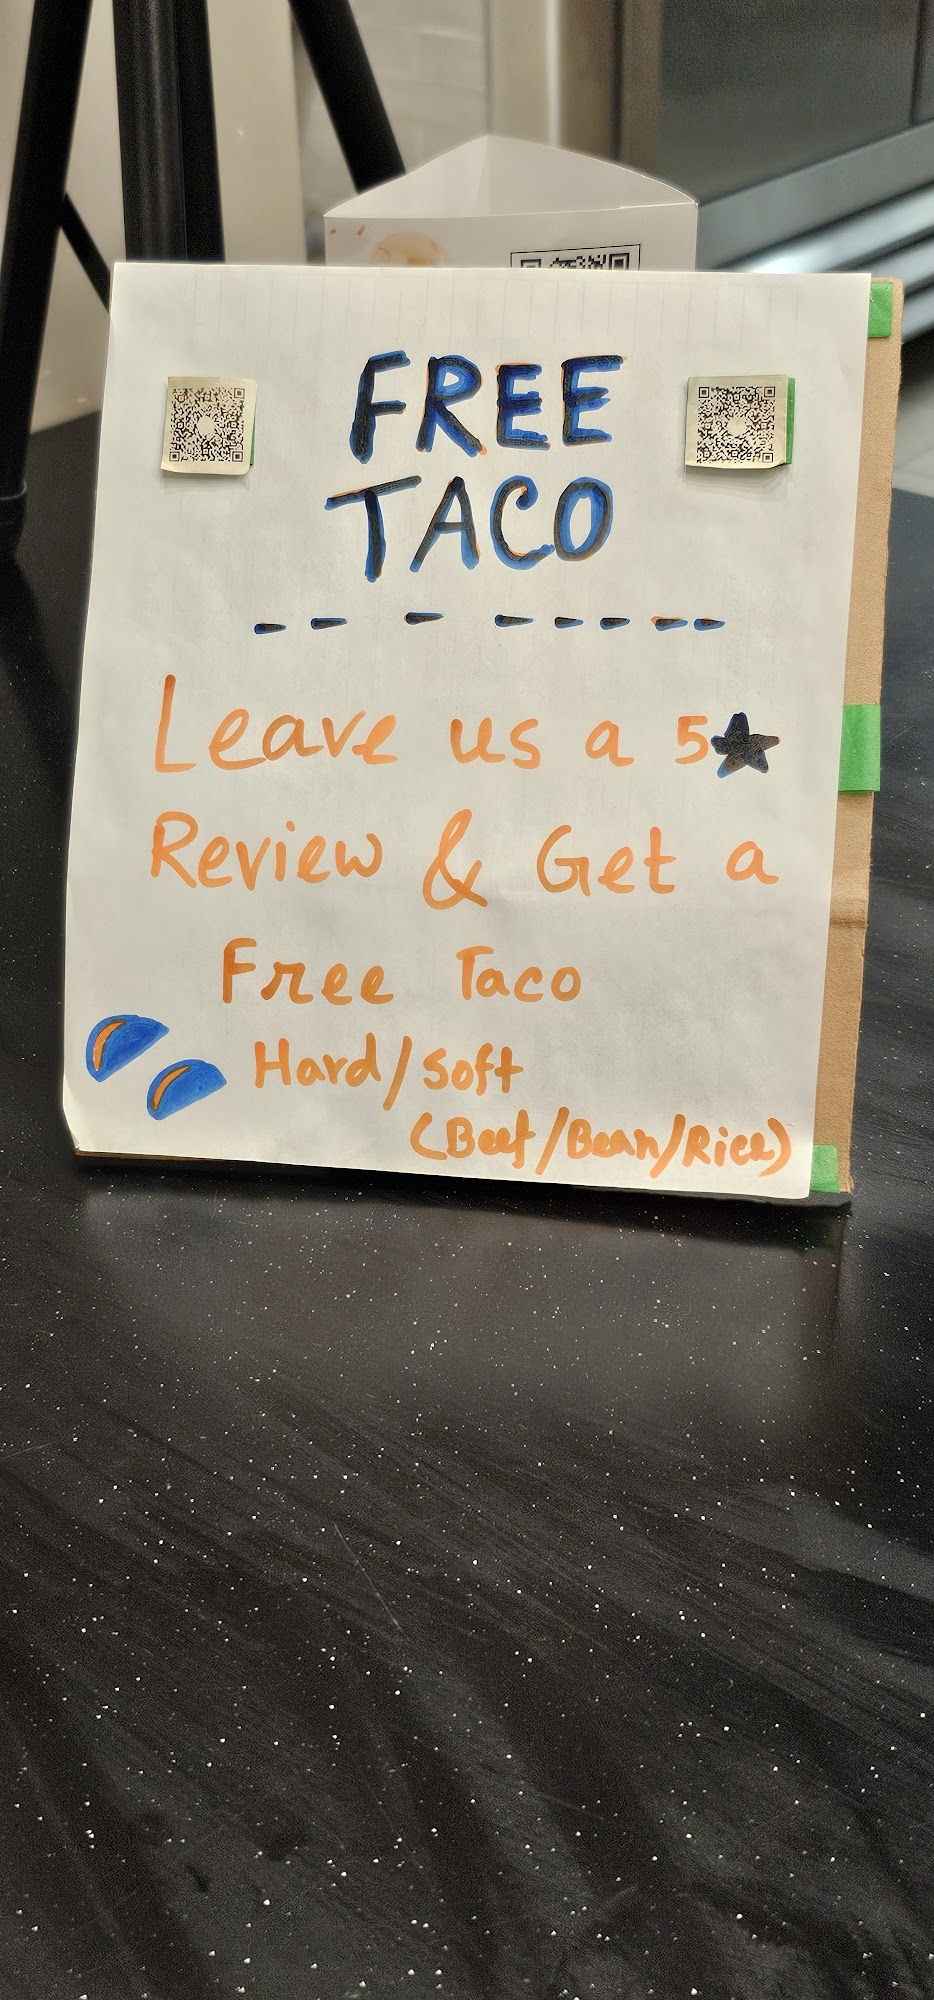 FREE
TACO
Leave us a 5★
Review & Get a
Free Taco
Hard/Soft
(Beef/Bean/Rice)